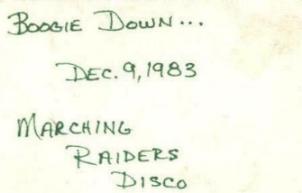 BOOGIE DOWN...
DEC. 9, 1983
MARCHING
RAIDERS
DISCO